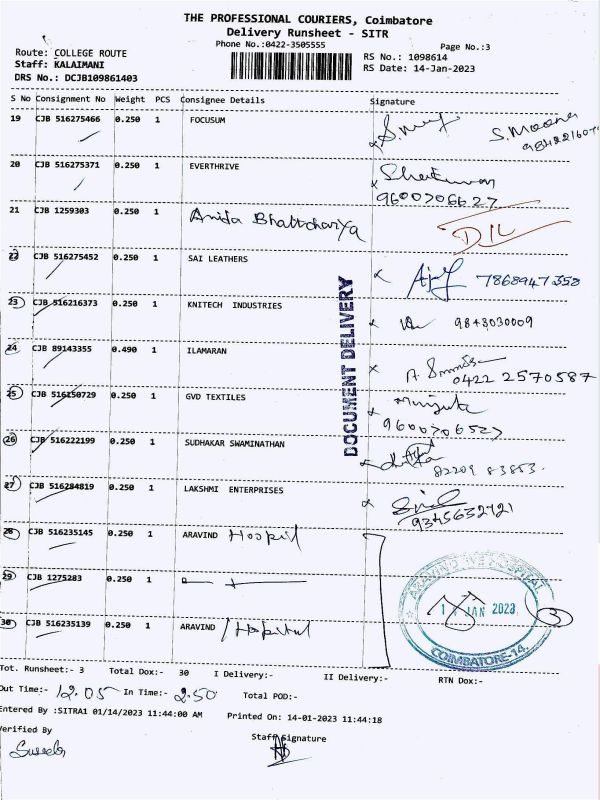 THE PROFESSIONAL COURIERS, Coimbatore
Delivery Runsheet - SITR
Phone No.:0422-3505555 Page No.:3
Route: COLLEGE ROUTE RS No.: 1098614
Staff: KALAIMANI RS Date: 14-Jan-2023
DRS No.: DCJB109861403
S No Consignment No Weight PCS Consignee Details Signature
19 CJB 516275466 0.250 1 FOCUSUM S.Moona
20 CJB 516275371 0.250 1 EVERTHRIVE
9600706627
21 CJB 1259303 0.250 1 Anida Bhattcharya DIL
22 CJB 516275452 0.250 1 SAI LEATHERS 7868947358
23 CJB 516216373 0.250 1 KNITECH INDUSTRIES 9843030009
24 CJB 89143355 0.490 1 ILAMARAN
0422 2570587
25 CJB 516150729 0.250 1 GVD TEXTILES
9600706527
26 CJB 516222199 0.250 1 SUDHAKAR SWAMINATHAN
82209 83853
27 CJB 516284819 0.250 1 LAKSHMI ENTERPRISES
9345632721
28 CJB 516235145 0.250 1 ARAVIND Hospital
29 CJB 1275283 0.250 1
30 CJB 516235139 0.250 1 ARAVIND / Hospital
DOCUMENT DELIVERY
ARAVIND EYE HOSPITAL
JAN 2023
COIMBATORE-14.
3
Tot. Runsheet:- 3 Total Dox:- 30 I Delivery:- II Delivery:- RTN Dox:-
Out Time:- 12.05 In Time:- 2.50 Total POD:-
Entered By :SITRA1 01/14/2023 11:44:00 AM Printed On: 14-01-2023 11:44:18
Verified By Staff Signature